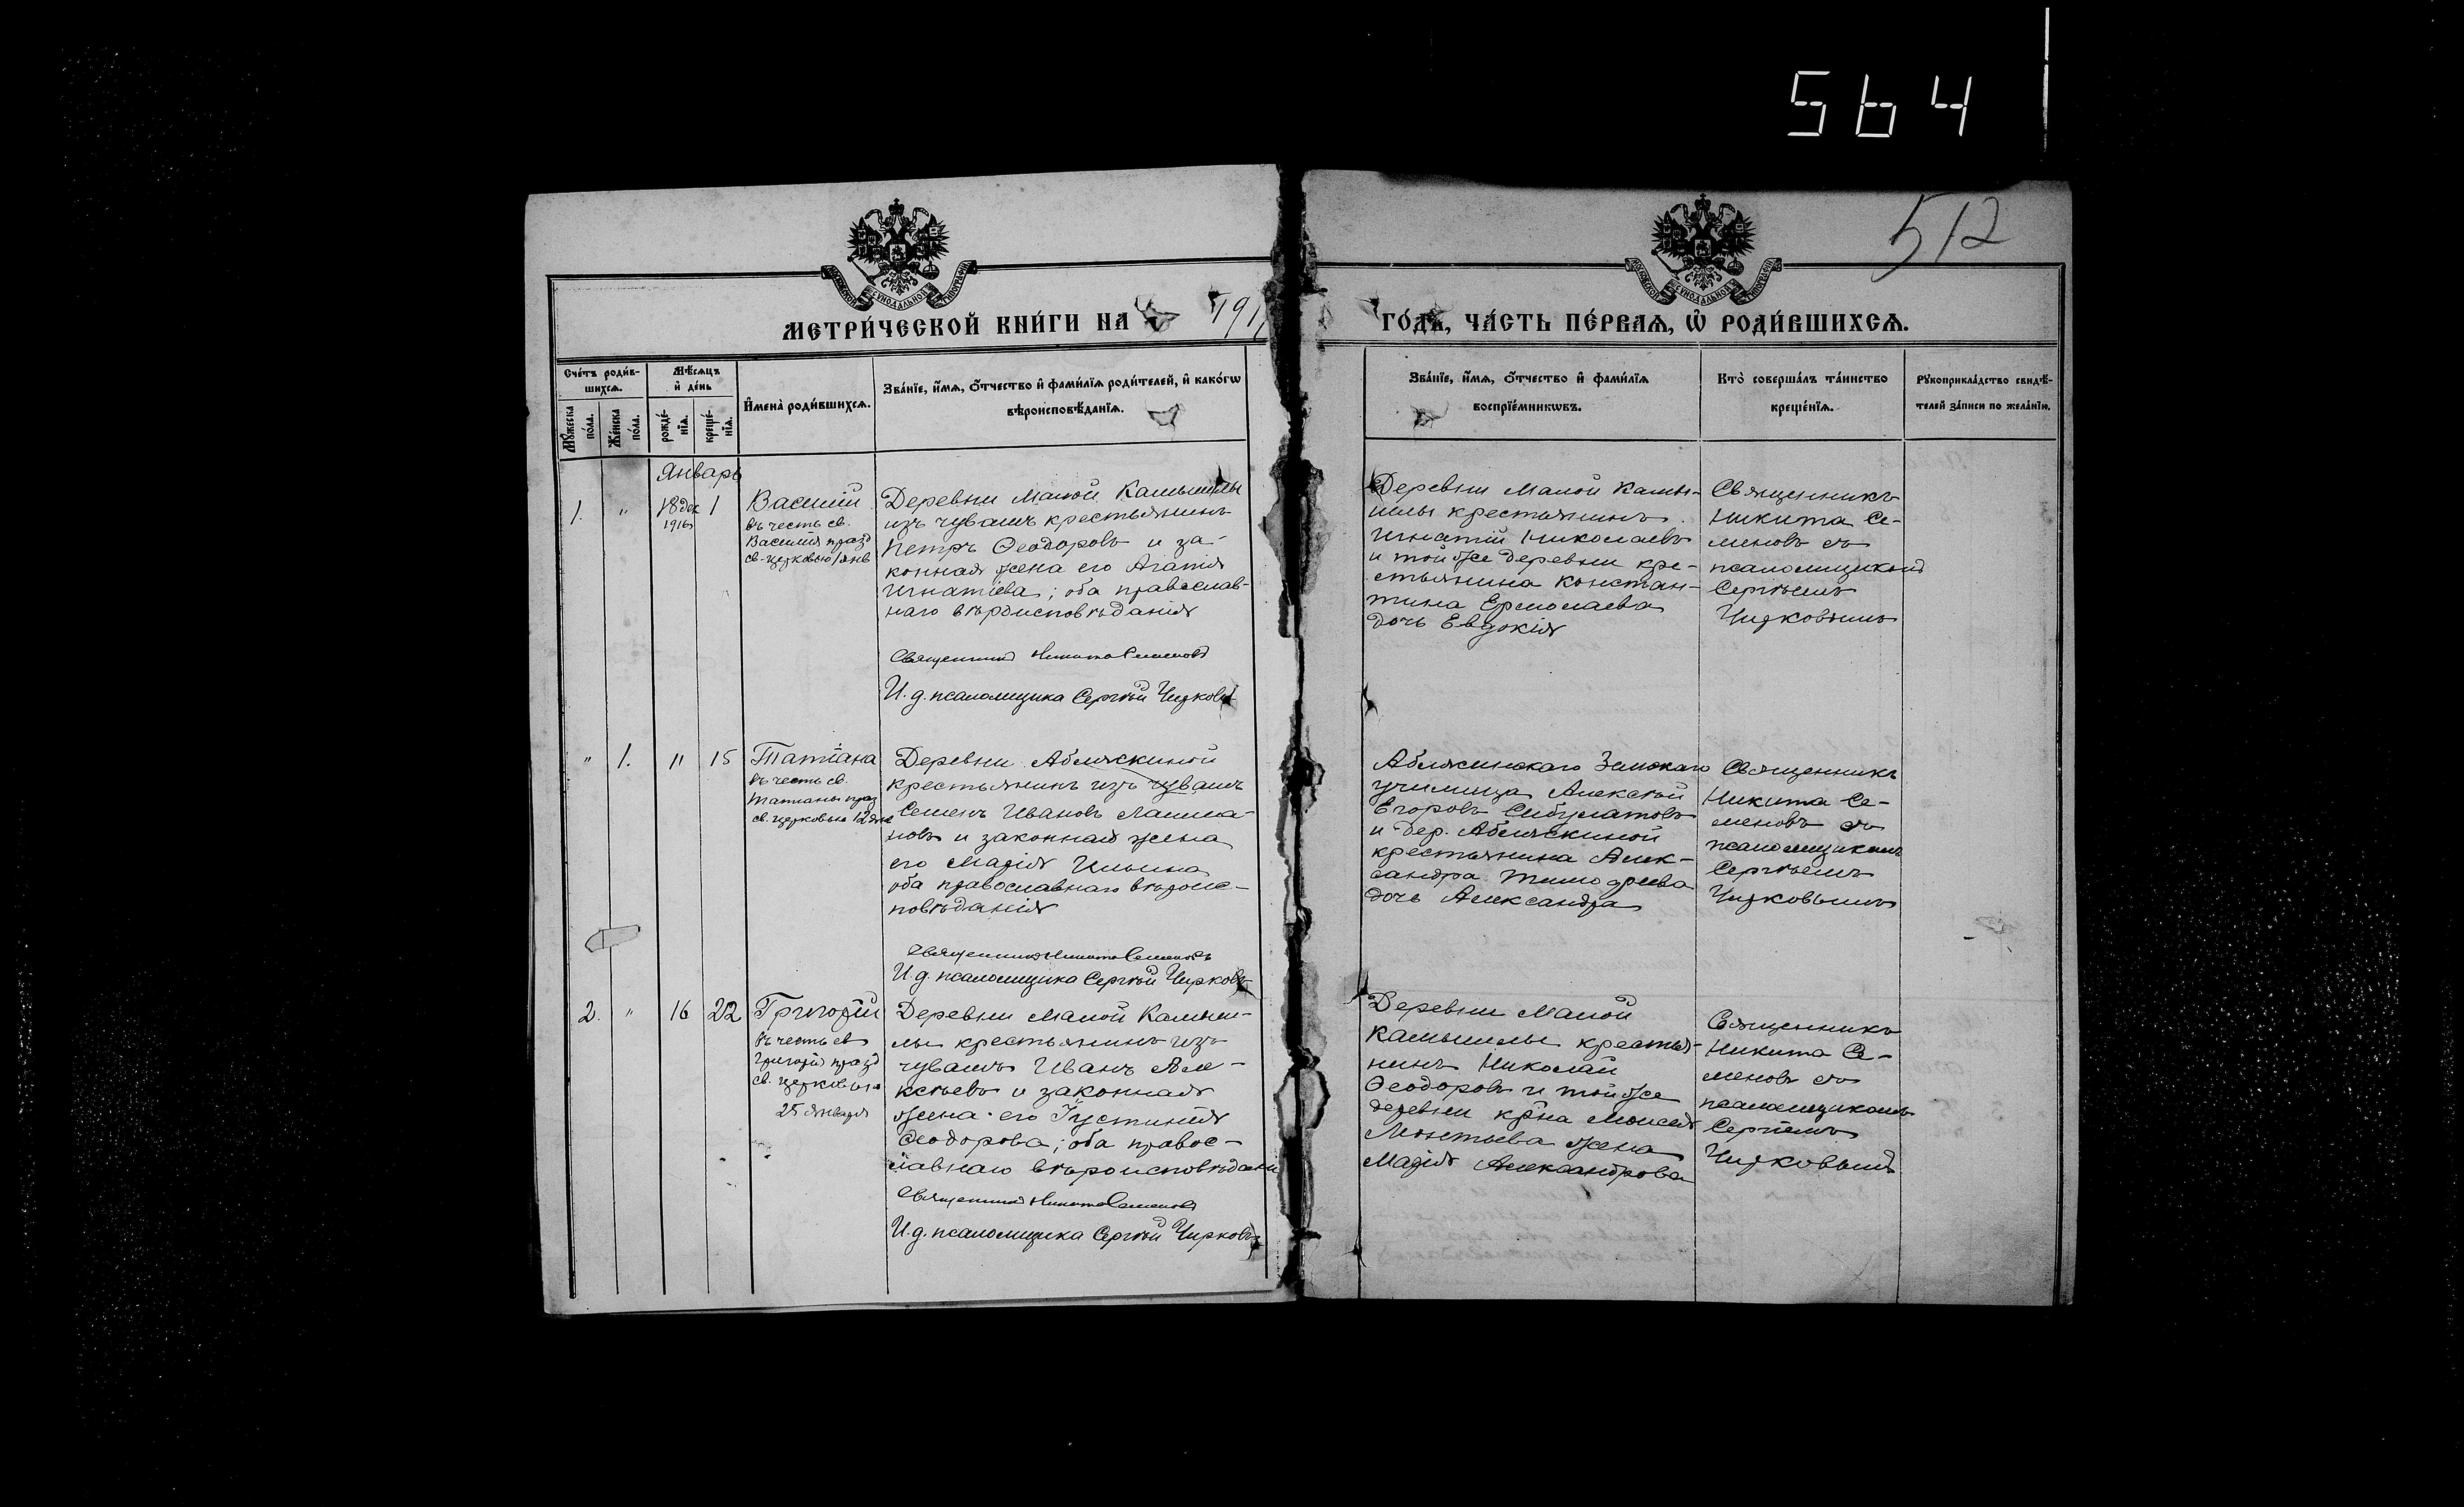 564
512
МОСКОВСКОЙ СѴНОДАЛЬНОЙ ТИПОГРАФІИ
МОСКОВСКОЙ СѴНОДАЛЬНОЙ ТИПОГРАФІИ
МЕТРИ́ЧЕСКОЙ КНИ́ГИ НА 191
ГО́ДЪ, ЧА́СТЬ ПЕ́РВАѦ, Ѡ҆ РОДИ́ВШИХСѦ.
Сче́тъ роди́в-
шихсѧ.
Мꙋ́жеска
по́ла.
Же́нска
по́ла.
Мѣ́сѧцъ
и҆ де́нь
рожде́-
нїѧ.
креще́-
нїѧ.
И҆мена̀ роди́вшихсѧ.
Зва́нїе, и҆́мѧ, ѻ҆́тчество и҆ фами́лїѧ роди́телей, и҆ како́гѡ
вѣроисповѣ́данїѧ.
Зва́нїе, и҆́мѧ, ѻ҆́тчество и҆ фами́лїѧ
воспрїе́мникѡвъ.
Кто̀ соверша́лъ та́инство
креще́нїѧ.
Рꙋкоприкла́дство свидѣ́-
телей за́писи по жела́нїю.
Январь
1. " 18 дек 1
1916
Василій
въ честь св.
Василія празд
св. церковью 1 янв
Деревни Малой Камышлы
изъ чувашъ крестьянинъ
Петръ Ѳеодоровъ и за-
конная жена его Агапія
Игнатіева; оба православ-
наго вѣроисповѣданія
Священникъ Никита Семеновъ
И. д. псаломщика Сергѣй Чирковъ
Деревни Малой Камы-
шлы крестьянинъ
Игнатій Николаевъ
и той же деревни кре-
стьянина Констан-
тина Ермолаева
дочь Евдокія
Священникъ
Никита Се-
меновъ съ
псаломщикомъ
Сергѣемъ
Чирковымъ
" 1. 11 15
Татіана
въ честь св.
Татианы празд
св. церковью 12 янв
Деревни Абляскиной
крестьянинъ изъ чувашъ
Семенъ Ивановъ
и законная жена
его Марія Ильина
оба православнаго вѣроис-
повѣданія
Священникъ Никита Семеновъ
И. д. псаломщика Сергѣй Чирковъ
Абляскинскаго Земскаго
училища Алексѣй
Егоровъ Сибулатовъ
и дер. Абляскиной
крестьянина Алек-
сандра Тимофеева
дочь Александра
Священникъ
Никита Се-
меновъ съ
псаломщикомъ
Сергѣемъ
Чирковымъ
2. " 16 22
Григорій
въ честь св
Григорія празд
св. церковью
25 января
Деревни Малой Камыш-
лы крестьянинъ изъ
чувашъ Иванъ Але-
ксѣевъ и законная
жена его Іустинія
Ѳеодорова; оба правос-
лавнаго вѣроисповѣдані
Священникъ Никита Семеновъ
И. д. псаломщика Сергѣй Чирковъ
Деревни Малой
Камышлы крестья-
нинъ Николай
Ѳеодоровъ и той же
деревни кр-на Моисея
Леонтьева жена
Марія Александрова
Священникъ
Никита Се-
меновъ съ
псаломщикомъ
Сергіемъ
Чирковымъ